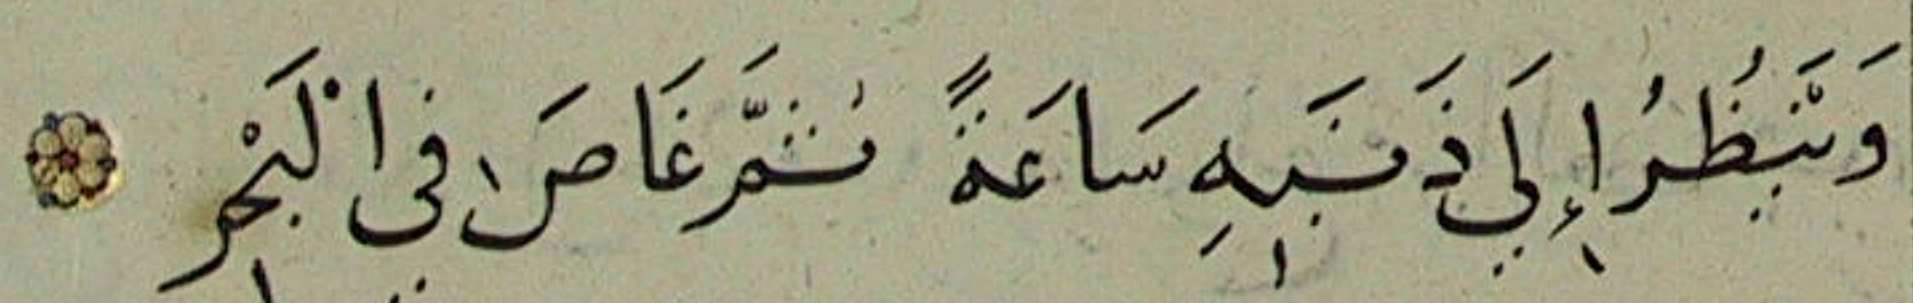 وَيَنْظُرُ إِلَى ذَنَبِهِ سَاعَةً ثُمَّ غَاصَ فِي الْبَحْرِ